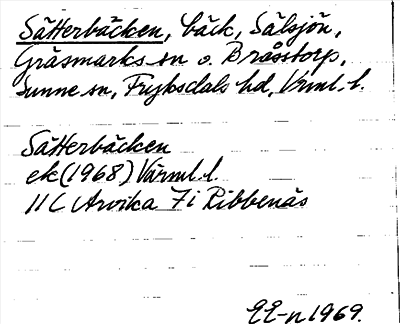 Sätterbäcken, bäck, Sälsjön,
Gräsmarks sn o. Bråsstorp,
Sunne sn, Fryksdals hd, Vrml. l.
Sätterbäcken
ek (1968) Värml. l.
11C Arvika 7i Ribbenäs
EE-n 1969.